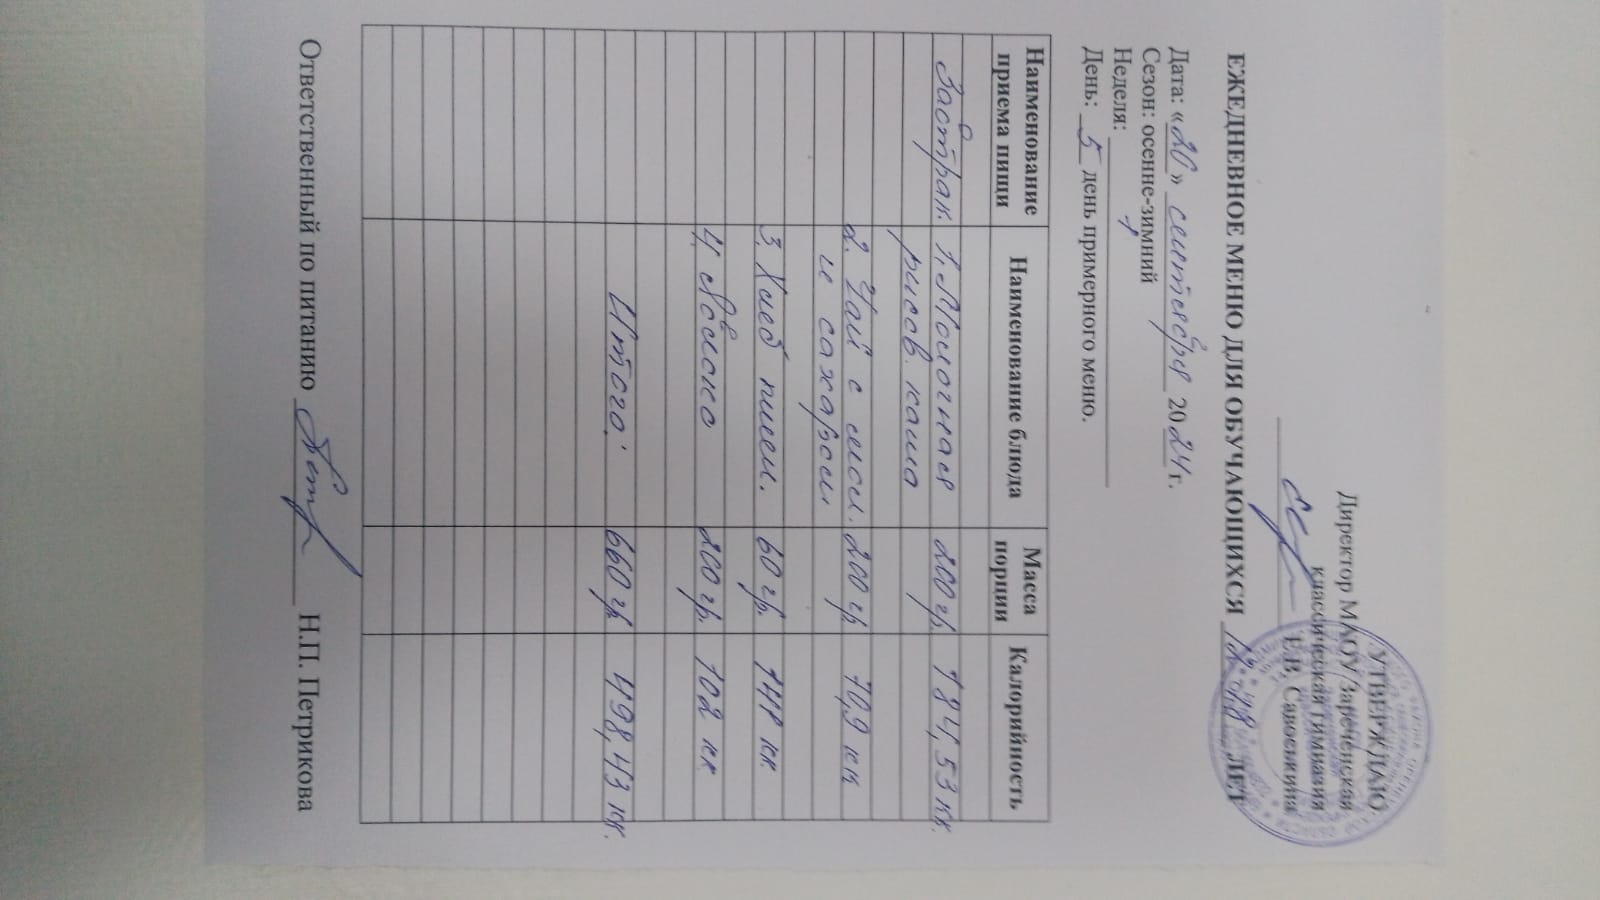 УТВЕРЖДАЮ:
Директор МАОУ Зареченская
классическая гимназия
Е.В. Савоенкина
ЕЖЕДНЕВНОЕ МЕНЮ ДЛЯ ОБУЧАЮЩИХСЯ 12-18 ЛЕТ
Дата: «20» сентября 2024 г.
Сезон: осенне-зимний
Неделя: 1
День: 5 день примерного меню.
Наименование приема пищи Наименование блюда Масса порции Калорийность
Завтрак. 1. Молочная 200гр. 184,53 кк.
рисов. каша
2. Чай с лим. 200гр. 70,9 кк
и сахаром
3. Хлеб пшен. 60гр. 141 кк.
4. Яблоко 200гр. 102 кк
Итого: 660гр 498,43 кк.
Ответственный по питанию Н.П. Петрикова